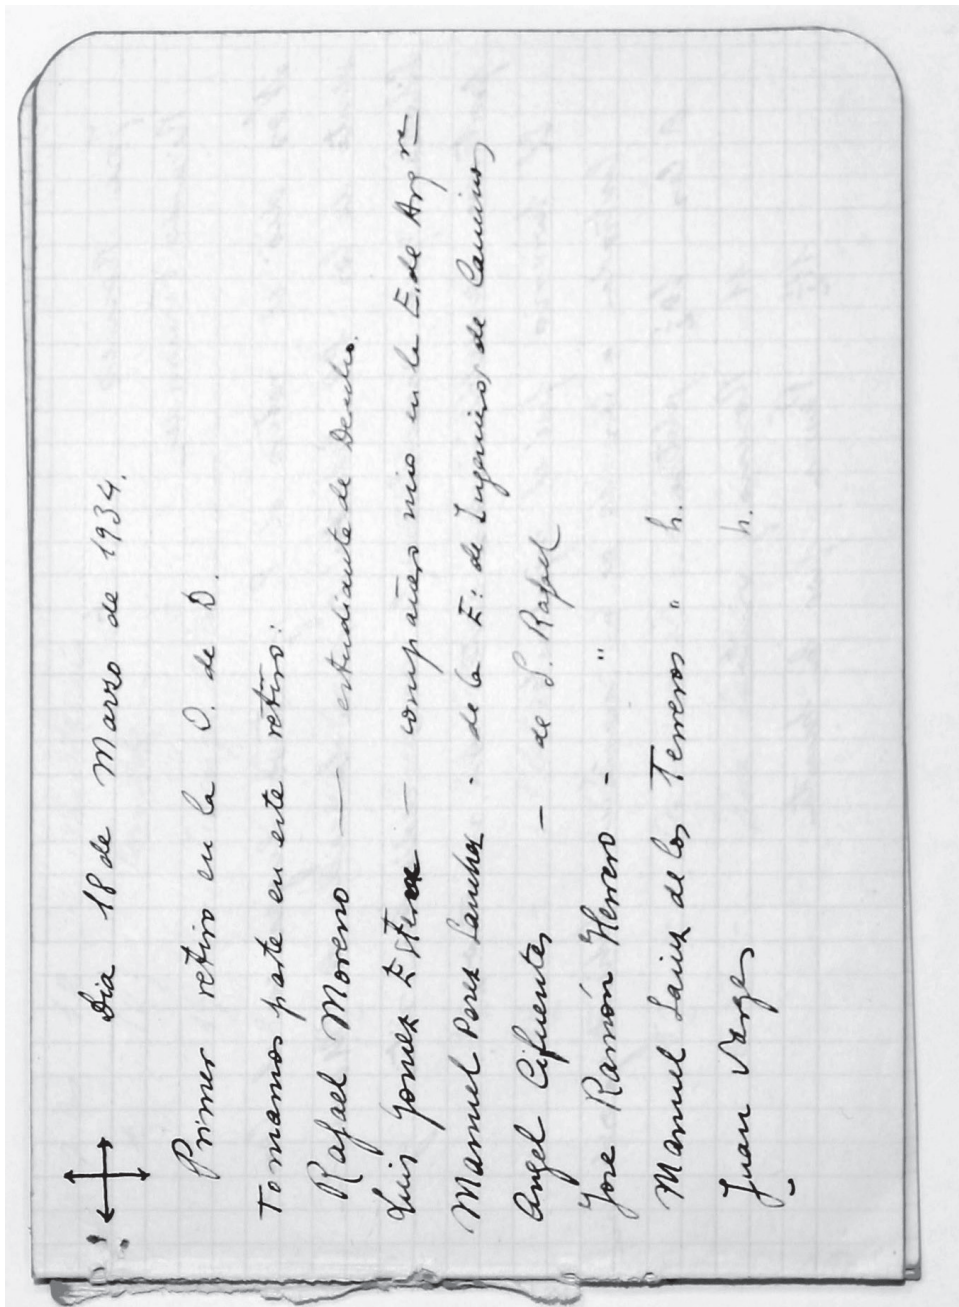 Dia 18 de Marzo de 1934.
Primer retiro en la O. de D.
Tomamos parte en este retiro:
Rafael Moreno — estudiante de Dentro.
Luis Gomez Esteve — compañero mio en la E. de Arq re
Manuel Perez Sanchez - de la E: de Ingenieros de Caminos
Angel Cifuentes — de S. Rafael
Jose Ramón Herrero - "
Manuel Sainz de los Terreros " h.
Juan Verges h.